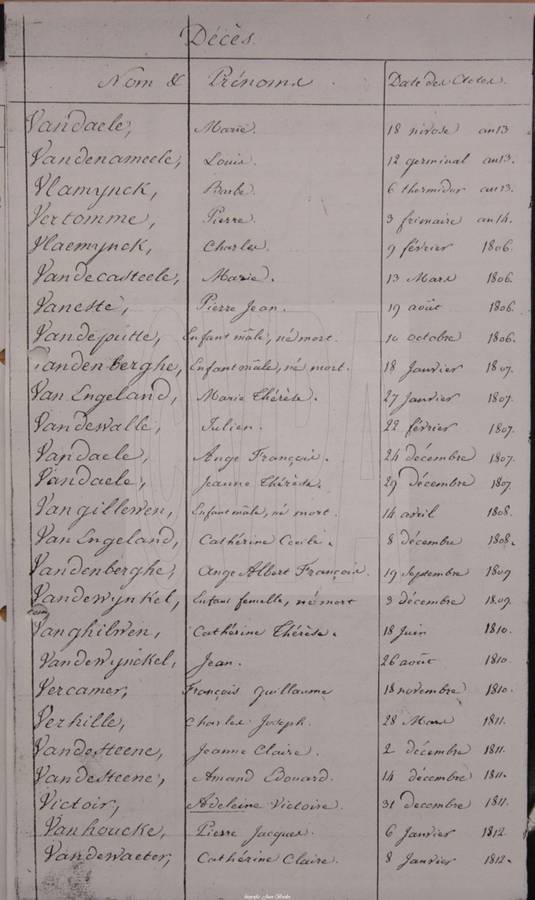 Décès.
Nom & Prénoms Date des Actes.
Vandaele, Marie. 18 nivose an 13
Vandenameele, Louis. 12 germinal an 13.
Vlamynck, Barbe 6 thermidor an 13.
Vertomme, Pierre. 3 frimaire an 14.
Vlaemynck, Charles 9 février 1806.
Vandecasteele, Marie. 13 Mars 1806.
Vaneste, Pierre Jean. 19 août 1806.
Vandeputte, Enfant mâle, né mort. 10 octobre 1806.
Vandenberghe, Enfant mâle, né mort. 18 Janvier 1807.
Van Engeland, Marie Thérèse. 27 Janvier 1807.
Vandewalle, Julien. 22 février 1807.
Vandaele, Ange François. 24 décembre 1807.
Vandaele, Jeanne Thérèse. 29 décembre 1807
Van gillewen, Enfant mâle, né mort. 14 avril 1808.
Van Engeland, Cathérine Cecile. 8 décembre 1808.
Vandenberghe, Ange Albert François. 19 Septembre 1809
Vandewynkel, Enfant femelle, né mort 3 décembre 1809.
Vanghilwen, Cathérine Thérèse. 18 Juin 1810.
Vandewynckel, Jean. 26 août 1810.
Vercamer, François Guillaume 18 novembre 1810.
Verhille, Charles Joseph. 28 Mars 1811.
Vandesteene, Jeanne Claire. 2 décembre 1811.
Vandesteene, Amand Edouard. 14 décembre 1811.
Victoir, Adeleine Victoire. 31 decembre 1811.
Vanhoucke, Pierre Jacques. 6 Janvier 1812
Vandewaeter, Cathérine Claire. 8 Janvier 1812.